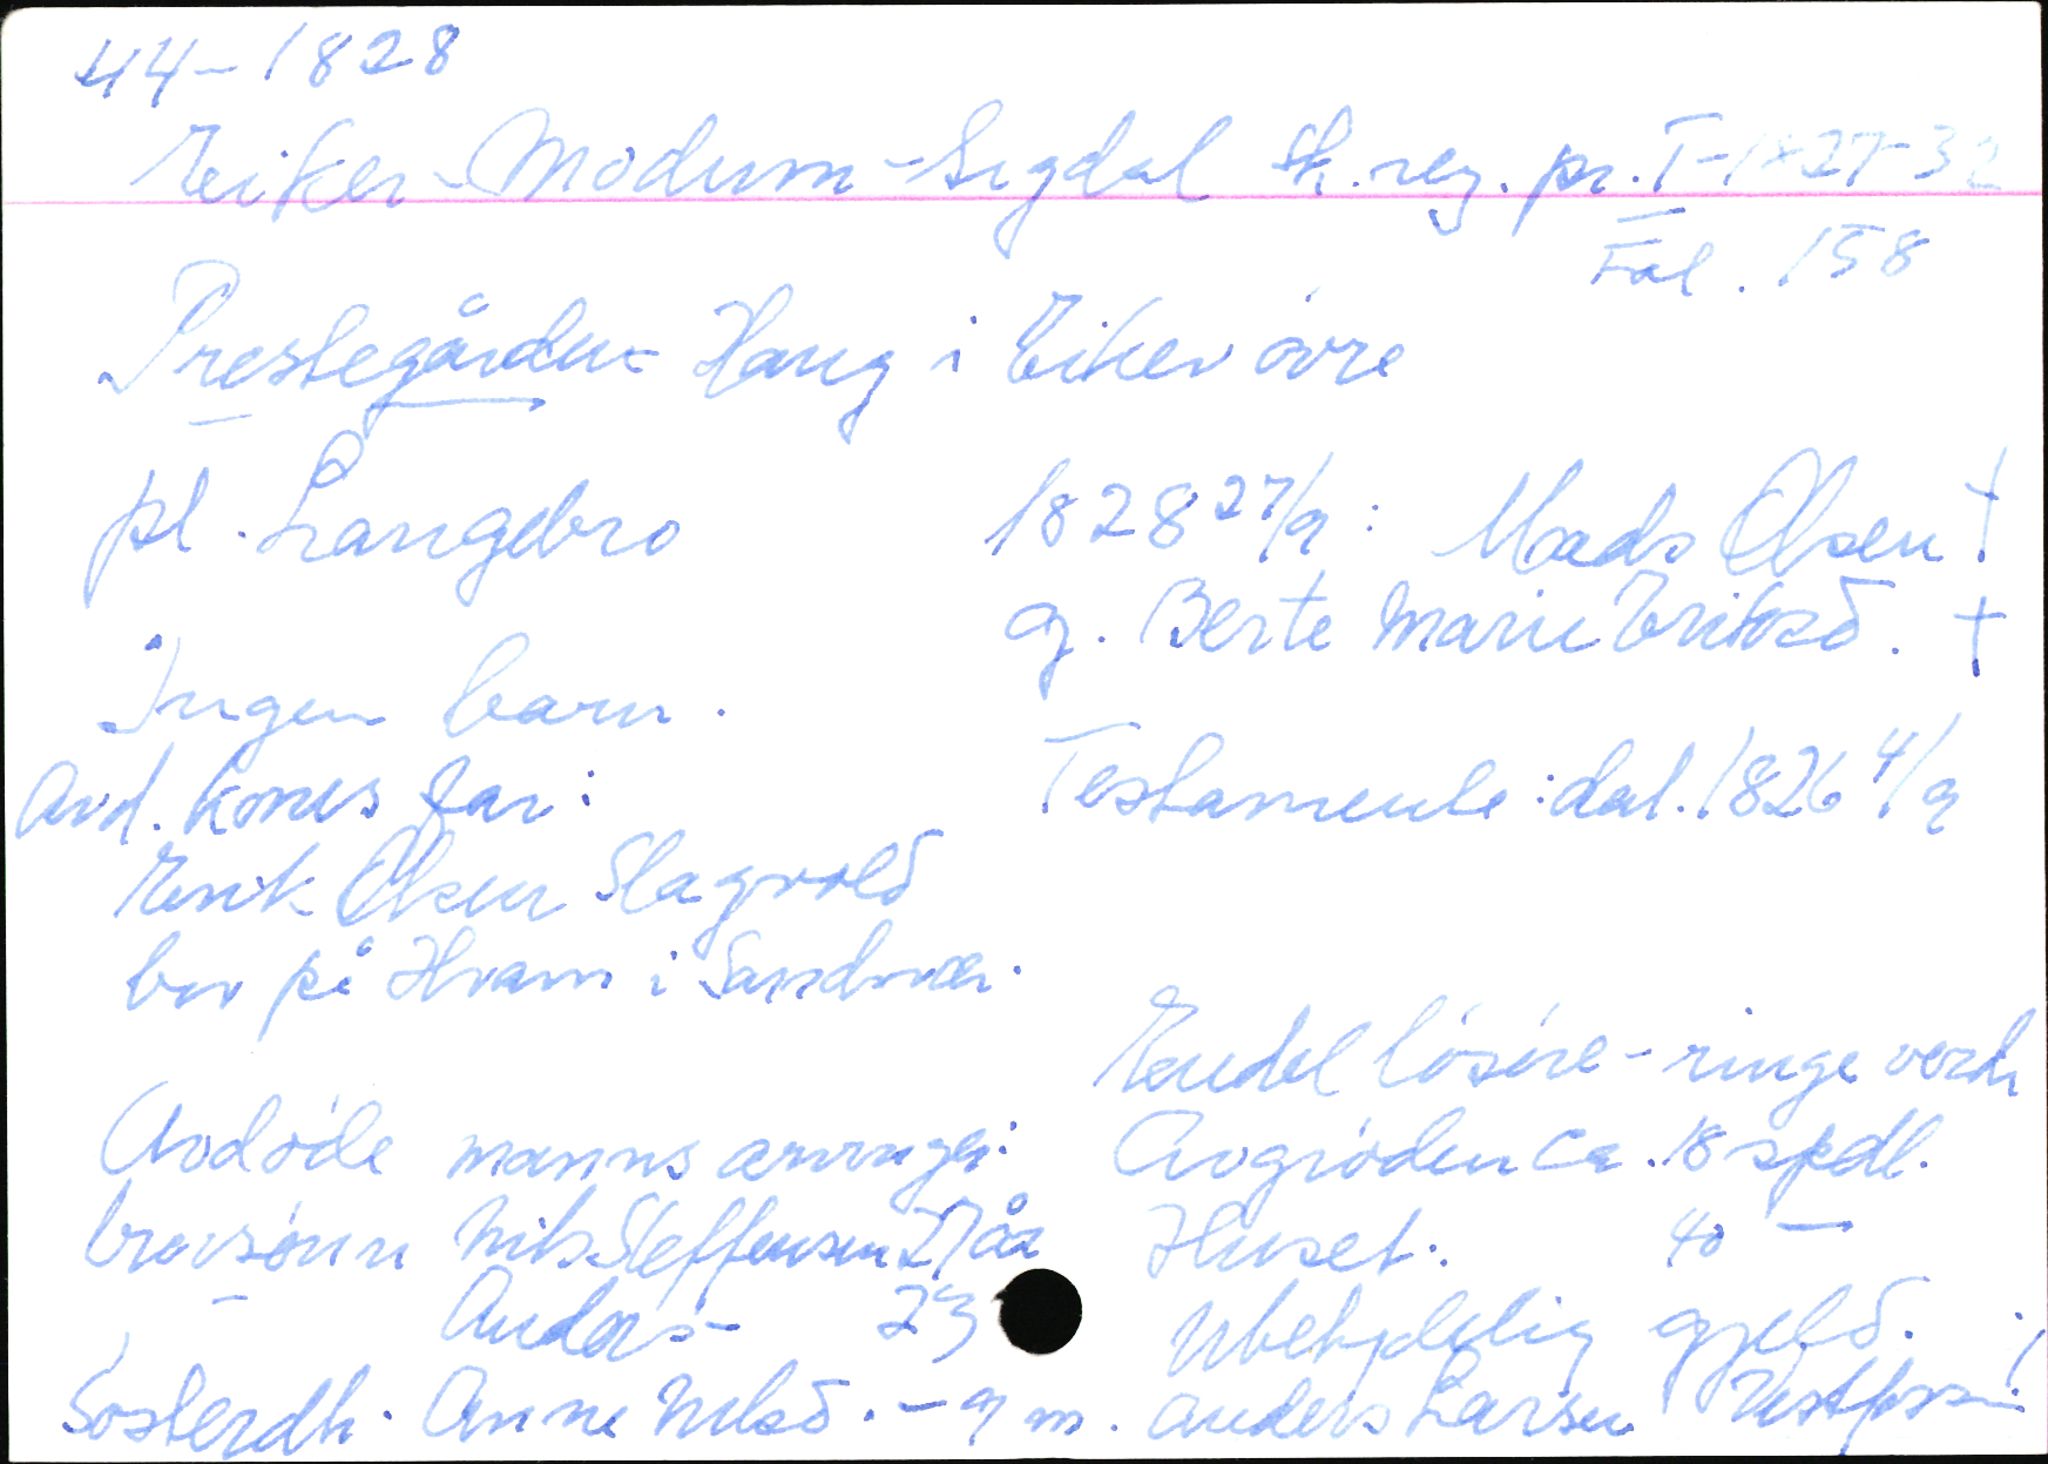 44-1828
Eiker-Modum-Sigdal sk.reg.pr. I-1827-32
Fol. 158
Prestegården Haug i Eiker øvre
pl. Langebro
1828 27/9: Mads Olsen †
g. Berte Marie Eriksd. †
Ingen barn.
Avd. kones far:
Testamente: dat. 1826 4/9
Erik Olsen Slagvold
bor på Hvam i Sandsvær.
Eendel løsøre - ringe verdi
Avdøde manns arvinger:
Avgrøden ca. 18 spdl.
brorsønn Nils Steffensen 27 år
Huset: 40 —
— Anders - 23
Ubetydelig gjeld.
Søsterdtr. Anne Nilsd. - g m. Anders Larsen Vestfossen!